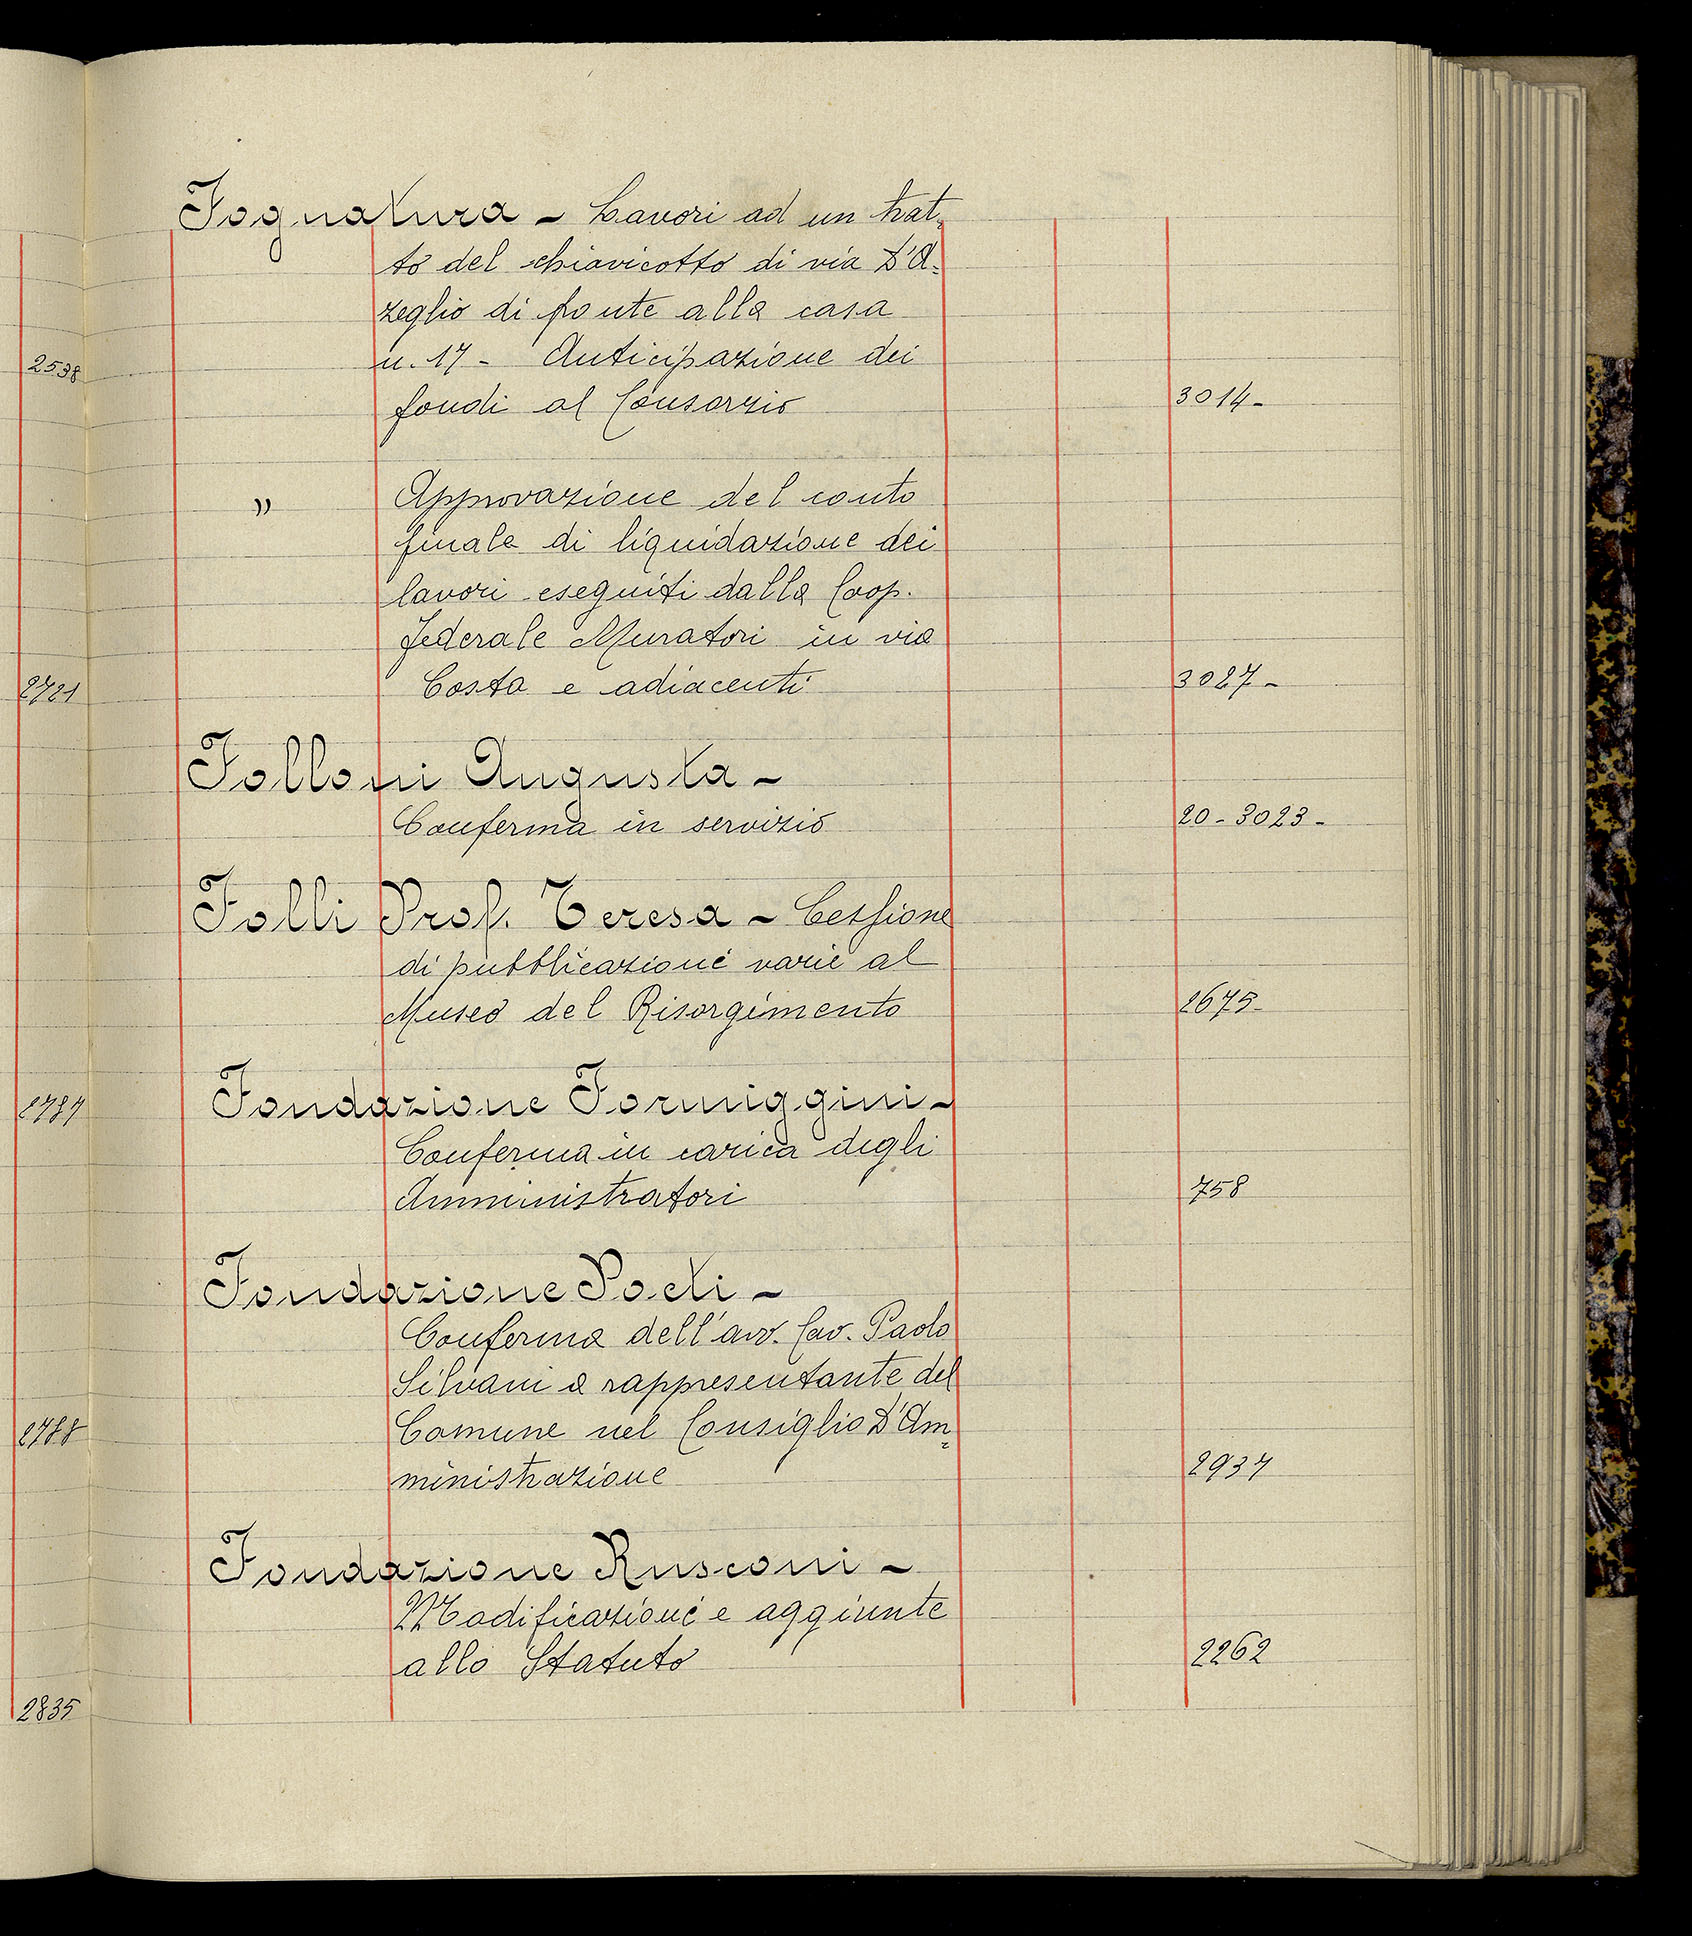 2538
2721
2787
2788
2835
Fognatura - Lavori ad un trat=
to del chiavicotto di via D'A=
zeglio di fronte alla casa
n. 17 - Anticipazione dei
fondi al Consorzio 3014 -
" Approvazione del conto
finale di liquidazione dei
lavori eseguiti dalla Coop.
federale Muratori in via
Costa e adiacenti 3027 -
Folloni Augusta -
Conferma in servizio 20 - 3023 -
Folli Prof. Teresa - Cessione
di pubblicazioni varie al
Museo del Risorgimento 2675 -
Fondazione Formiggini -
Conferma in carica degli
Amministratori 758
Fondazione Poeti -
Conferma dell'avv. Cav. Paolo
Silvani a rappresentante del
Comune nel Consiglio D'Am=
ministrazione 2937
Fondazione Rusconi -
Modificazioni e aggiunte
allo Statuto 2262